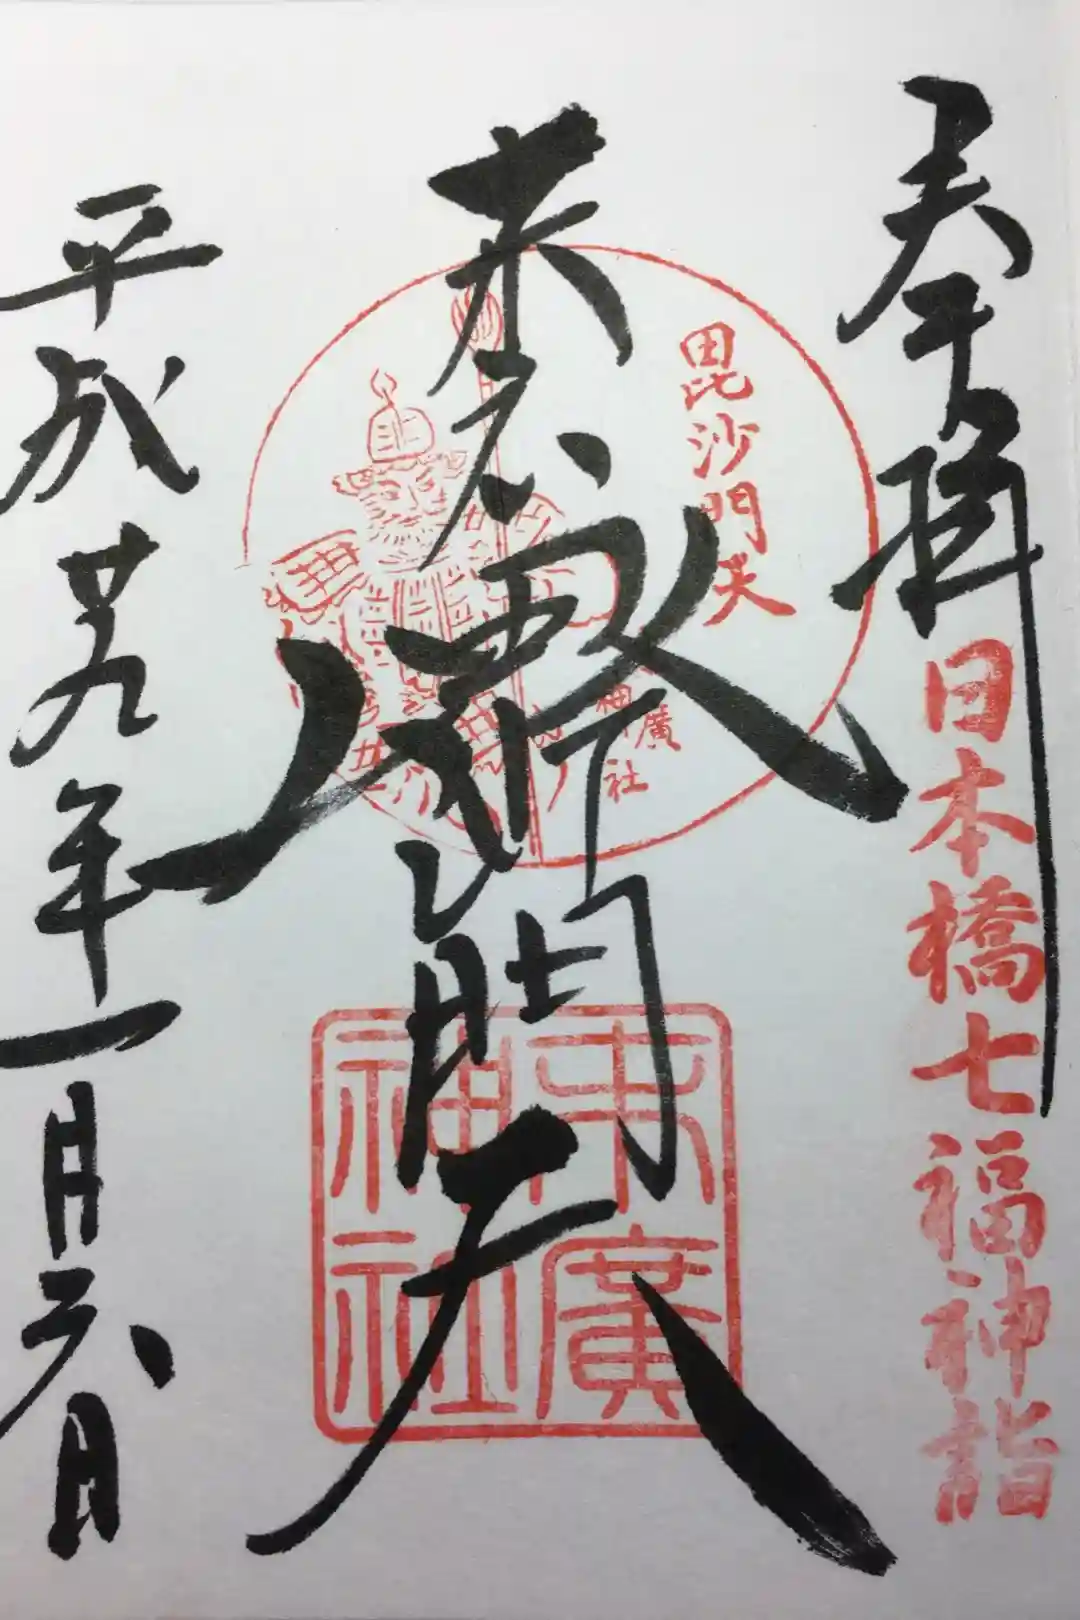 奉拝
日本橋七福神詣
毘沙門天
末廣
神社
末廣毘沙門天
末廣
神社
平成廿九年一月六日